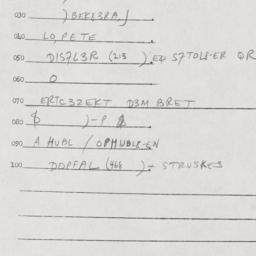 030 ) BEKE3RA,J
040 LO,PETE
050 DIS7L3R (213 ),EQ S7TOLL-ER OR
060 O
070 ERTC32EKT D3M BRET
080 )-P
090 A HUBL / OPHUBLR-EN
100 DOPFAL (466 )- STRUSKES